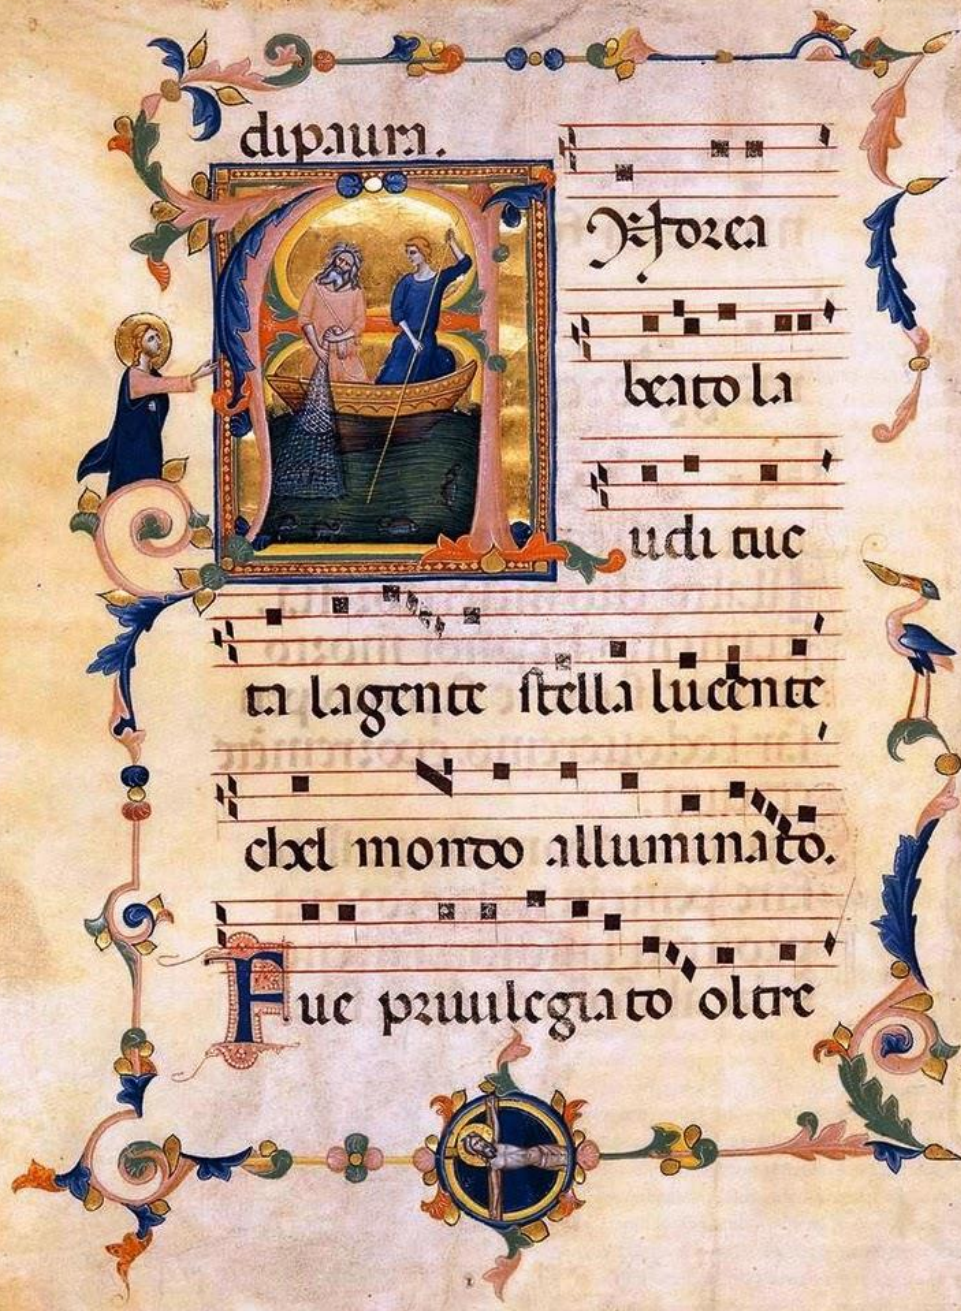 di paura.
Andrea
beato la
udi tuc
ta la gente stella lucente
chel mondo alluminato.
Fue priuilegiato oltre